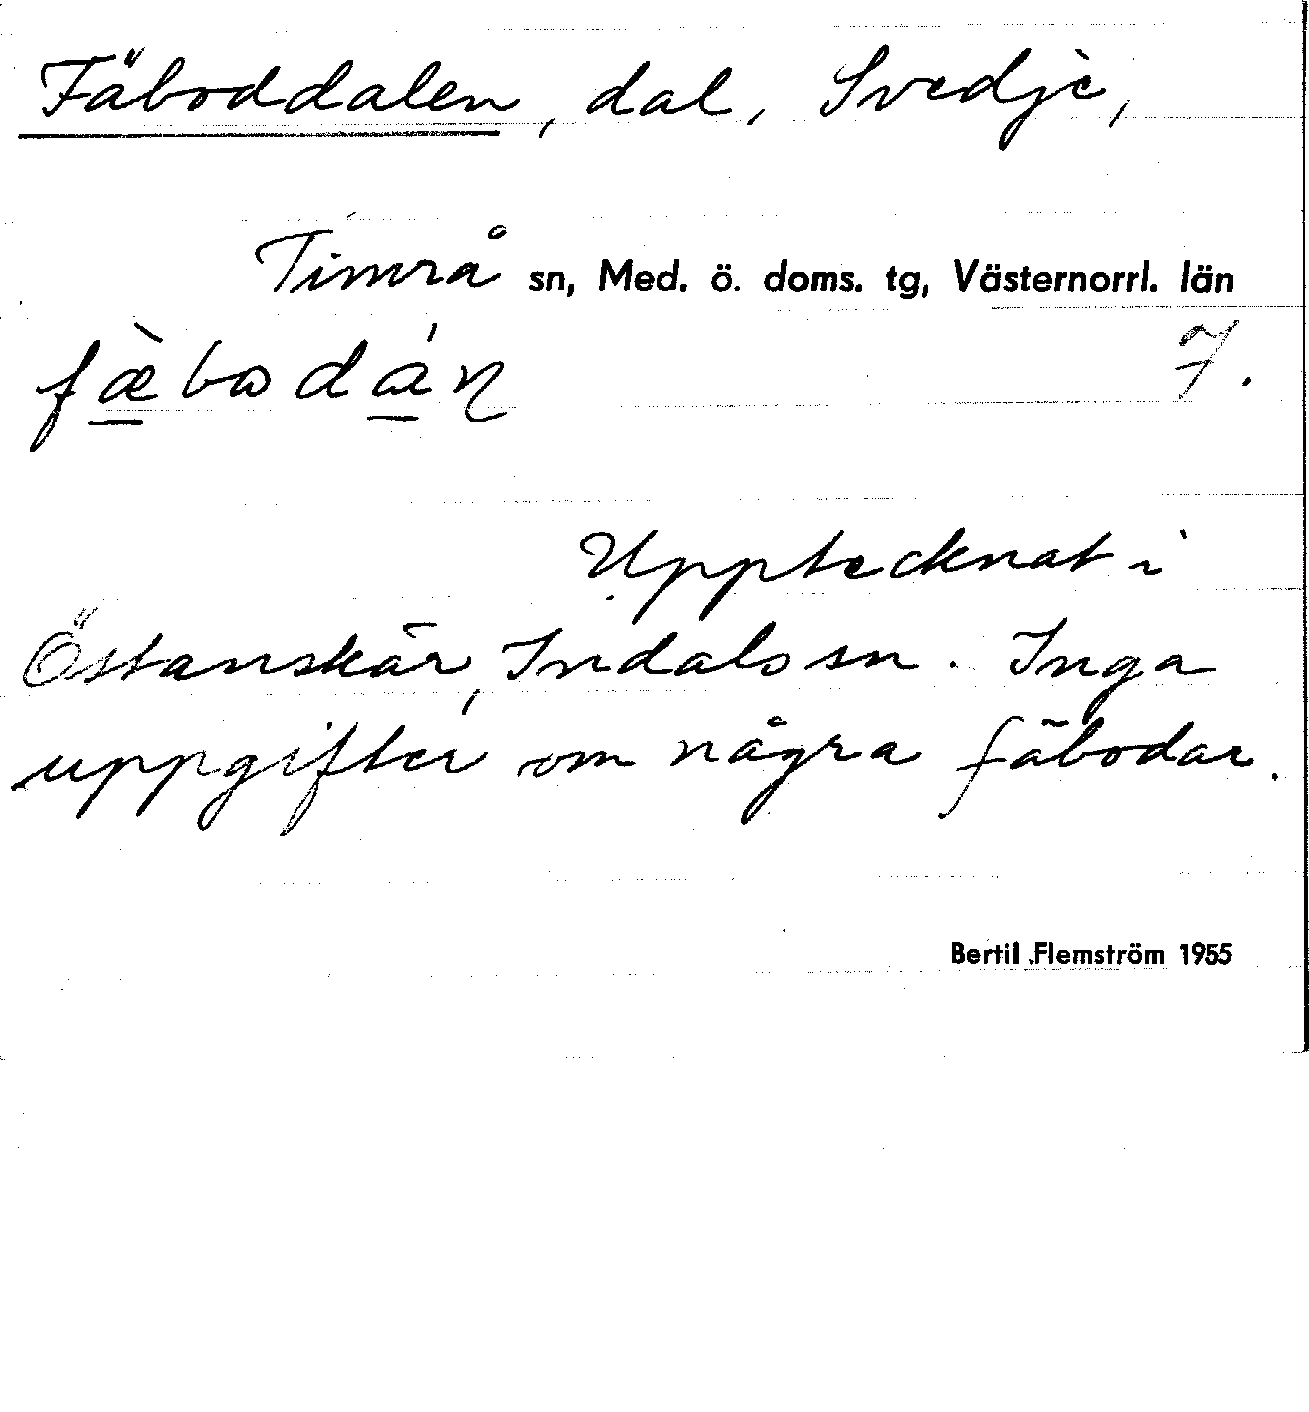 Fäboddalen, dal, Svedje,
Timrå sn, Med. ö. doms. tg, Västernorrl. län
fæ̀bodán 7.
Upptecknat i
Östanskär, Indals sn. Inga
uppgifter om några fäbodar.
Bertil Flemström 1955